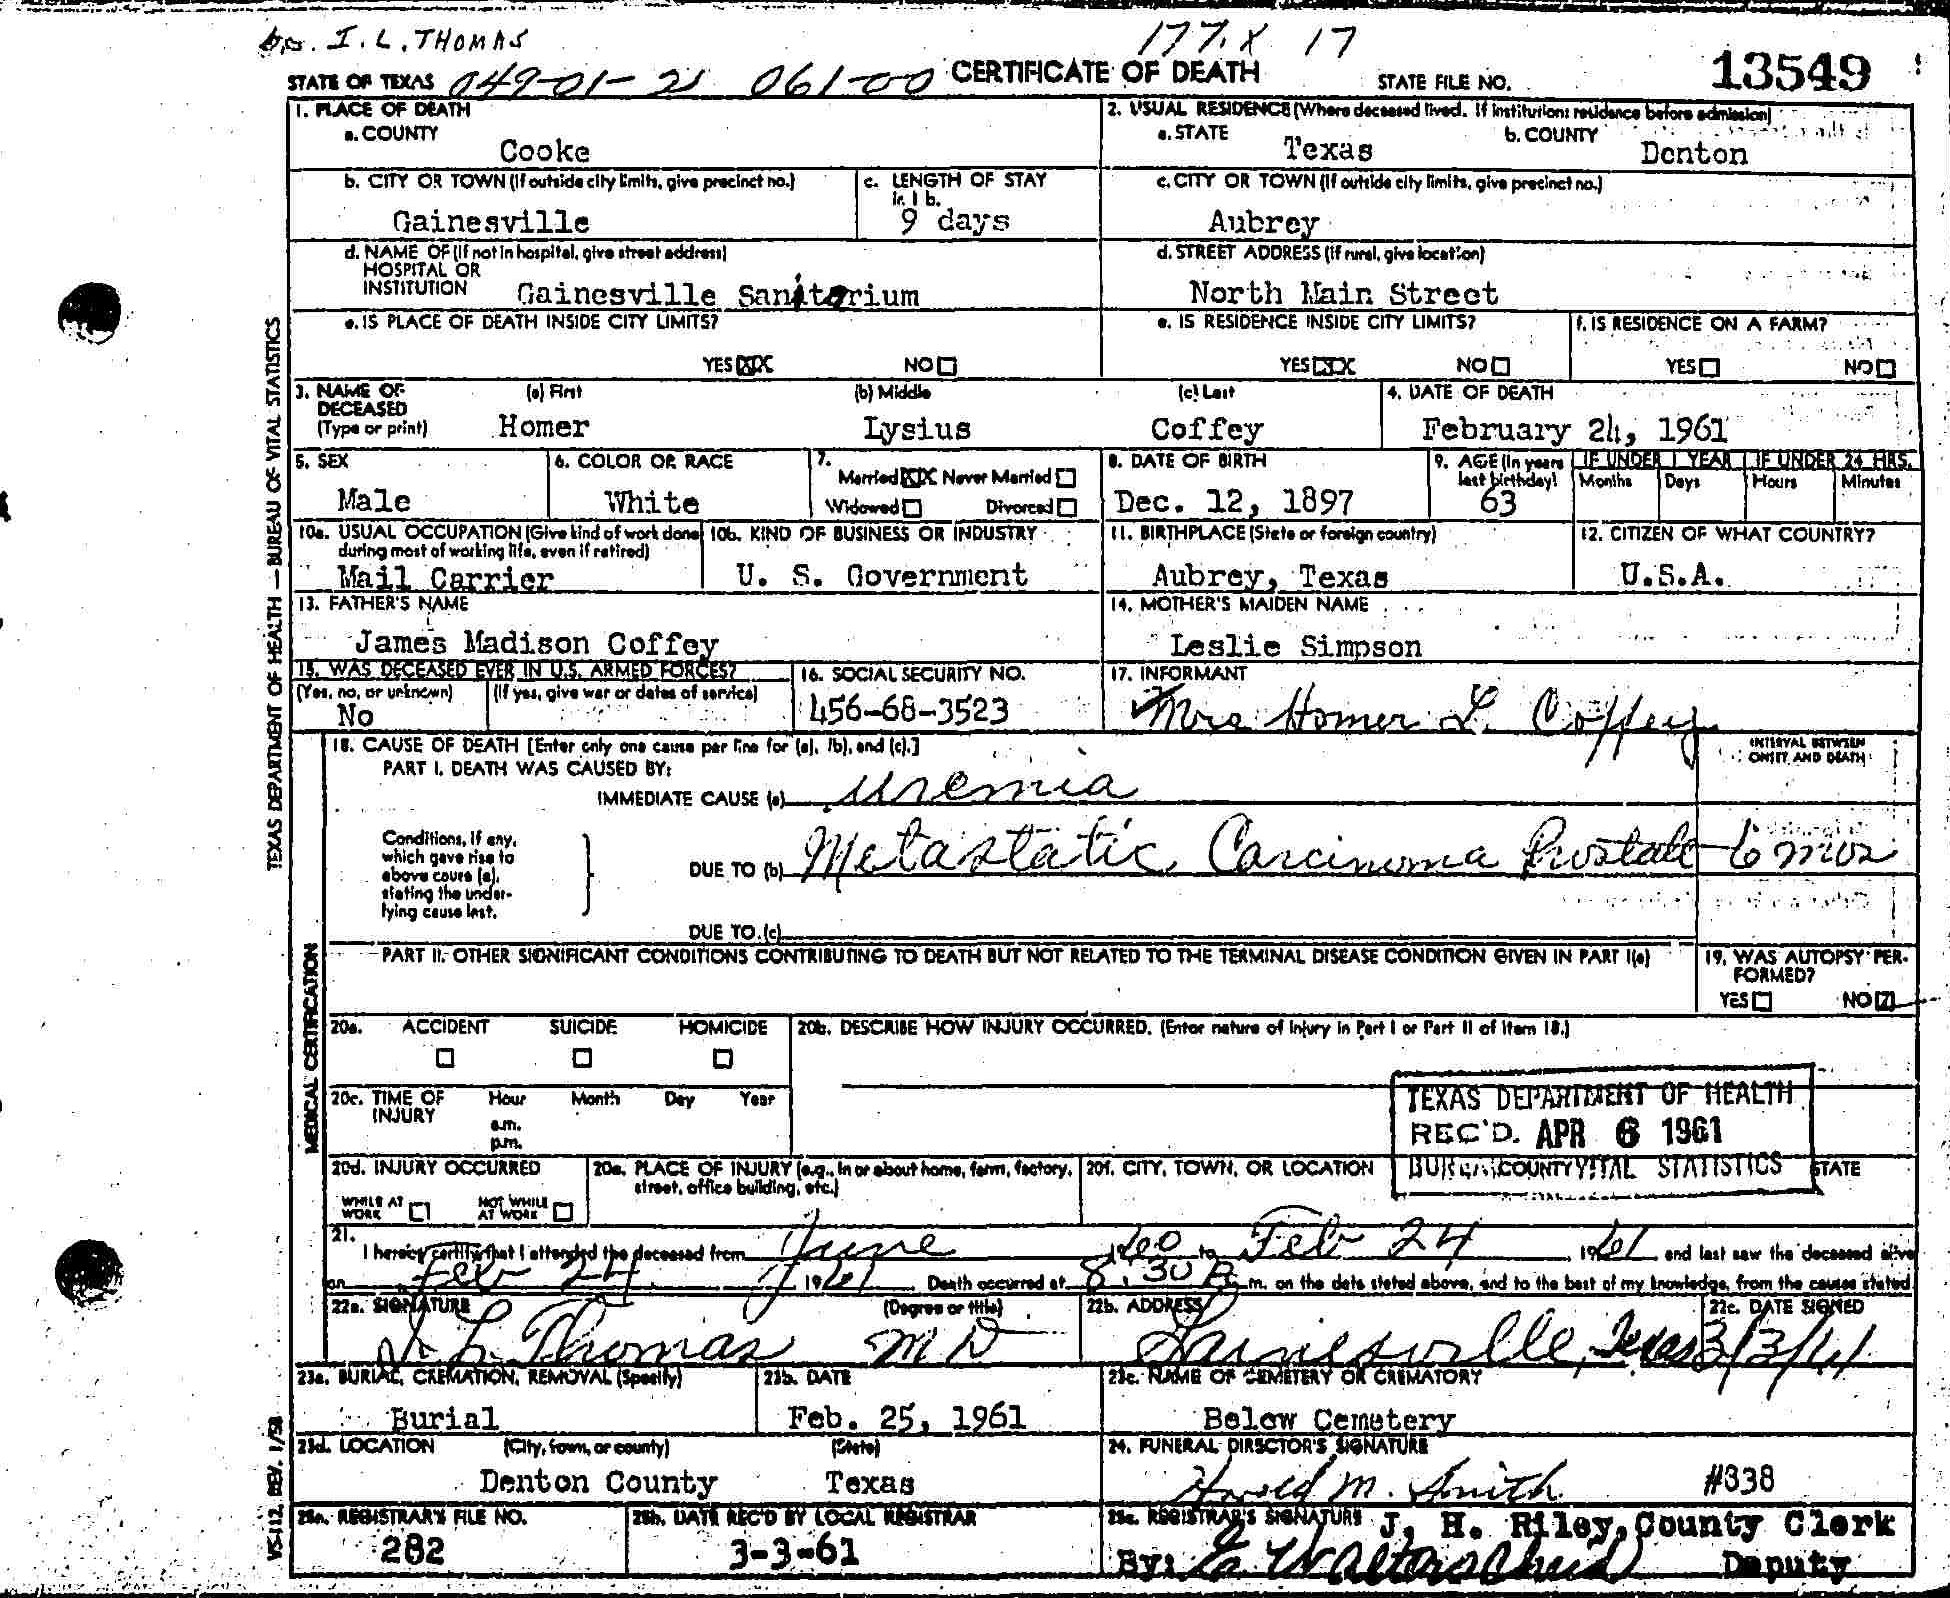 Dr. I. L. THOMAS
177.X 17
STATE OF TEXAS 049-01-21 061-00 CERTIFICATE OF DEATH STATE FILE NO. 13549
1. PLACE OF DEATH
a. COUNTY
Cooke
2. USUAL RESIDENCE (Where deceased lived. If institution: residence before admission)
a. STATE Texas b. COUNTY Denton
b. CITY OR TOWN (If outside city limits, give precinct no.)
Gainesville
c. LENGTH OF STAY
in 1 b.
9 days
c. CITY OR TOWN (If outside city limits, give precinct no.)
Aubrey
d. NAME OF (If not in hospital, give street address)
HOSPITAL OR
INSTITUTION Gainesville Sanitarium
d. STREET ADDRESS (If rural, give location)
North Main Street
e. IS PLACE OF DEATH INSIDE CITY LIMITS?
YES XX NO
e. IS RESIDENCE INSIDE CITY LIMITS?
YES XX NO
f. IS RESIDENCE ON A FARM?
YES NO
3. NAME OF
DECEASED
(Type or print)
(a) First (b) Middle (c) Last
Homer Lysius Coffey
4. DATE OF DEATH
February 24, 1961
5. SEX
Male
6. COLOR OR RACE
White
7.
Married XX Never Married
Widowed Divorced
8. DATE OF BIRTH
Dec. 12, 1897
9. AGE (In years
last birthday)
63
IF UNDER 1 YEAR IF UNDER 24 HRS.
Months Days Hours Minutes
10a. USUAL OCCUPATION (Give kind of work done
during most of working life, even if retired)
Mail Carrier
10b. KIND OF BUSINESS OR INDUSTRY
U. S. Government
11. BIRTHPLACE (State or foreign country)
Aubrey, Texas
12. CITIZEN OF WHAT COUNTRY?
U.S.A.
13. FATHER'S NAME
James Madison Coffey
14. MOTHER'S MAIDEN NAME
Leslie Simpson
15. WAS DECEASED EVER IN U.S. ARMED FORCES?
(Yes, no, or unknown) (If yes, give war or dates of service)
No
16. SOCIAL SECURITY NO.
456-68-3523
17. INFORMANT
Mrs Homer L. Coffey
18. CAUSE OF DEATH [Enter only one cause per line for (a), (b), and (c).]
INTERVAL BETWEEN
ONSET AND DEATH
PART I. DEATH WAS CAUSED BY:
IMMEDIATE CAUSE (a) Uremia
Conditions, if any,
which gave rise to
above cause (a),
stating the under-
lying cause last.
DUE TO (b) Metastatic Carcinoma Prostate 6 mos
DUE TO (c)
PART II. OTHER SIGNIFICANT CONDITIONS CONTRIBUTING TO DEATH BUT NOT RELATED TO THE TERMINAL DISEASE CONDITION GIVEN IN PART I(a)
19. WAS AUTOPSY PER-
FORMED?
YES NO
20a. ACCIDENT SUICIDE HOMICIDE
20b. DESCRIBE HOW INJURY OCCURRED. (Enter nature of injury in Part I or Part II of Item 18.)
20c. TIME OF
INJURY
Hour Month Day Year
a.m.
p.m.
TEXAS DEPARTMENT OF HEALTH
REC'D. APR 6 1961
BUREAU VITAL STATISTICS
20d. INJURY OCCURRED
WHILE AT
WORK
NOT WHILE
AT WORK
20e. PLACE OF INJURY (e.g., in or about home, farm, factory,
street, office building, etc.)
20f. CITY, TOWN, OR LOCATION COUNTY STATE
21.
I hereby certify that I attended the deceased from June 1960 to Feb 24 1961 and last saw the deceased alive
on Feb 24, 1961. Death occurred at 8:30 P.m. on the date stated above, and to the best of my knowledge, from the causes stated
22a. SIGNATURE (Degree or title)
I. L. Thomas MD
22b. ADDRESS
Gainesville, Texas
22c. DATE SIGNED
3/3/61
23a. BURIAL, CREMATION, REMOVAL (Specify)
Burial
23b. DATE
Feb. 25, 1961
23c. NAME OF CEMETERY OR CREMATORY
Belew Cemetery
23d. LOCATION (City, town, or county) (State)
Denton County Texas
24. FUNERAL DIRECTOR'S SIGNATURE
Harold M. Smith #338
25a. REGISTRAR'S FILE NO.
282
25b. DATE REC'D BY LOCAL REGISTRAR
3-3-61
25c. REGISTRAR'S SIGNATURE J. H. Riley, County Clerk
By: Deputy
TEXAS DEPARTMENT OF HEALTH — BUREAU OF VITAL STATISTICS
MEDICAL CERTIFICATION
VS-112, REV. 1/58